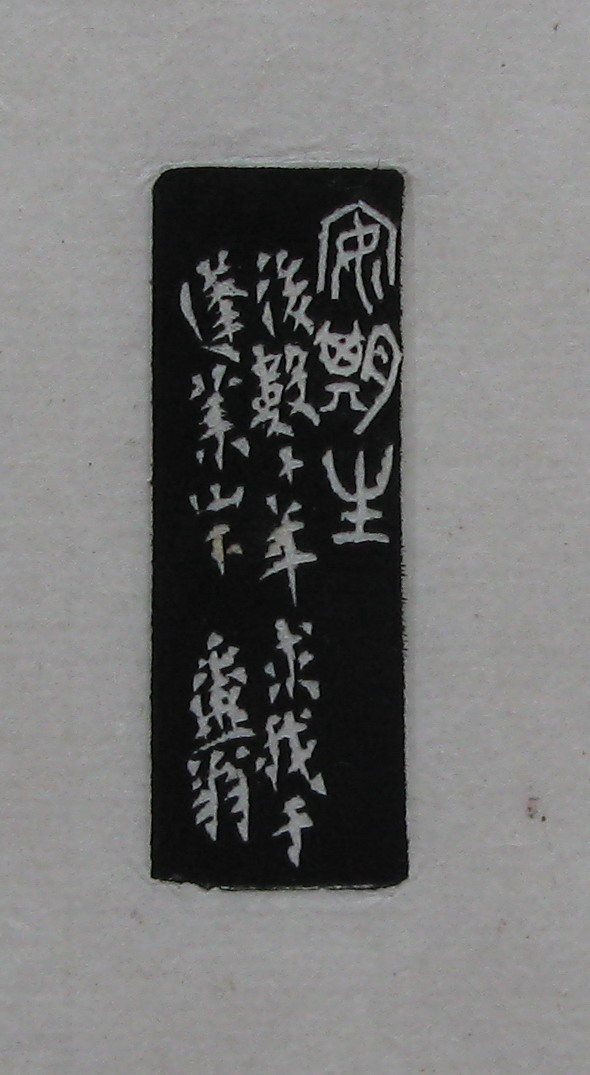 安期生
後數十年求我于
蓬萊山下 盦翁